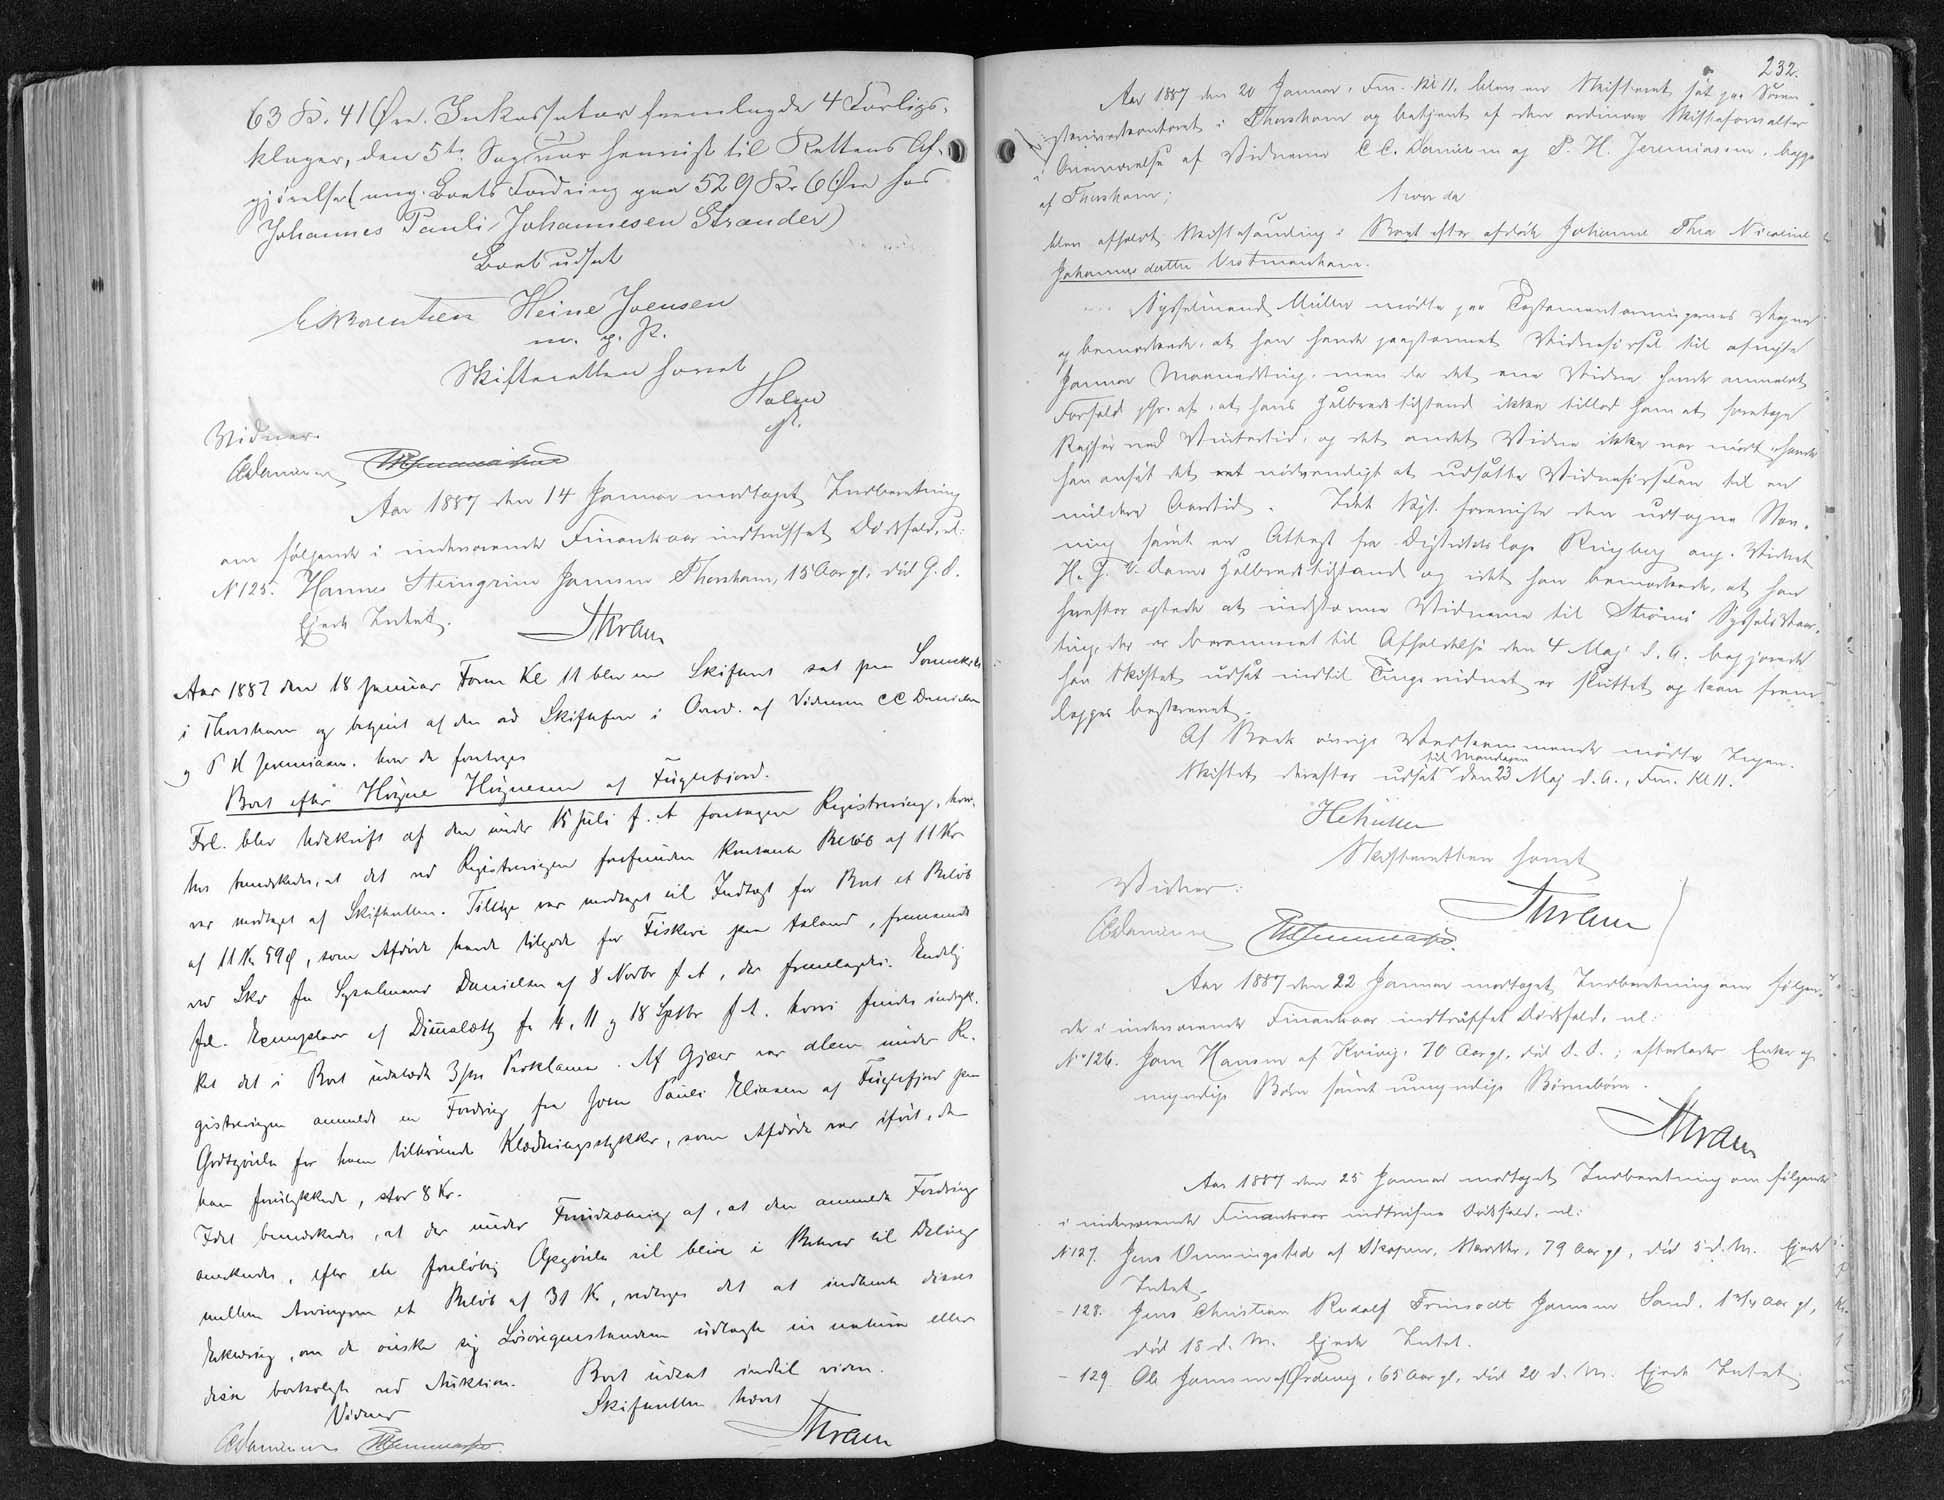 63 Kr. 41 Øre. Inkassator fremlagde 4 Forligs-
klager, den 5te Sag var henvist til Rettens Af-
gjørelse (ang. Boets Fordring paa 529 Kr 6 Øre hos
Johannes Pauli Johannesen Strander)
Boet udsat
Heine Joensen
m. f. P.
Skifteretten hævet
Vidner.
CCDanielsen PHJeremiassen
Aar 1887 den 14 Januar modtaget Indberetning
om følgende i indeværende Finantsaar indtruffet Dødsfald, nl:
N125. Hannes Steingrim Jansen Thorshavn, 15 Aar gl. død 9. d.
Ejede Intet.
Aar 1887 den 18 Januar Form Kl 11 blev en Skifteret sat paa
i Thorshavn og betjent af den ord Skiftefor i Overv. af Vidnerne CC Danielsen
og P H Jeremiassen. hvor da foretoges
Boet efter Høgne Høgnesen af Fuglefjord.
Frl. blev Udskrift af den under 15 Juli f. A foretagne Registrering, hvor-
hos bemærkedes, at det ved Registreringen forefundne kontante Beløb af 11 Kr
var modtaget af Skifteretten. Tillige var modtaget til Indtægt for Boet et Beløb
af 11 Kr 59 Ø, som Afdøde havde tilgode for Fiskeri paa Island, fremsendt
ved Skr fra Sysselmand Danielsen af 8 Novbr f A, der fremlagdes. Endelig
frl. Exemplarer af Dimmalætting for 4, 11 og 18 Septbr f. A. hvori findes indryk-
ket det i Boet udstedte Proklama. Af Gjæld var alene under Re-
gistreringen anmeldt en Fordring fra Joen Pauli Eliasen af Fuglefjord paa
Godtgjørelse for ham tilhørende Klædningsstykker, som Afdøde var iført, da
han forulykkede, stor 8 Kr.
Idet bemærkedes, at der under Forudsætning af, at den anmeldte Fordring
anerkendes, efter en foreløbig Opgjørelse vil blive i Behold til Deling
mellem Arvingerne et Beløb af 31 Kr, vedtoges det at indhente disses
Erklæring, om de ønske sig Løsøregjenstandene udlagte in natura eller
disse bortsolgte ved Auktion. Boet udsat indtil videre.
Skifteretten hævet
Vidner
CCDanielsen PHJeremiassen

232.
Aar 1887 den 20 Januar, Fm. Kl 11. blev en Skifteret sat paa Soren-
skriverkontoret i Thorshavn og betjent af den ordinære Skifteforvalter
i Overværelse af Vidnerne C C. Danielsen og P. H. Jeremiassen, begge
af Thorshavn;
hvor da
blev afholdt Skiftesamling i Boet efter afdøde Johanne Thea Nicoline
Johannesdatter Vestmanhavn.
Sysselmand Müller mødte paa Testamentarvingernes Vegne
og bemærkede, at han havde paastævnet Vidneførsel til afvigte
Januar Maanedsting, men da det ene Vidne havde anmeldt
Forfald paa Gr. af, at hans Helbredstilstand ikke tillod ham at foretage
Rejser ved Vintertid, og det andet Vidne ikke var mødt, havde
han anset det nødvendigt at udsætte Vidneførslen til en
mildere Aarstid. Idet Kpt. foreviste den udtagne Stæv-
ning samt en Attest fra Distriktslæge Ryberg ang. Vidnet
H. J. V. Dams Helbredstilstand og idet han bemærkede, at han
herefter agtede at indstævne Vidnerne til Strømø Syssels Vaar-
ting, der er berammet til Afholdelse den 4 Maj d. A. begjærede
han Skiftet udsat indtil Tingsvidnet er sluttet og kan frem-
lægges beskrevet.
Af Boets øvrige Vedkommende mødte Ingen.
Skiftet derefter udsat til Mandagen den 23 Maj d. A., Fm. Kl 11.
HCMüller
Skifteretten hævet
Vidner:
CCDanielsen PHJeremiassen
Aar 1887 den 22 Januar modtaget Indberetning om følgen-
de i indeværende Finantsaar indtruffet Dødsfald, nl:
No 126. Joen Hansen af Kvivig, 70 Aar gl, død d. d.; efterlader Enke og
myndige Børn samt umyndige Børnebørn.
Aar 1887 den 25 Januar modtaget Indberetning om følgende
i indeværende Finantsaar indtrufne Dødsfald, nl:
N127. Jens af Skopen, 79 Aar gl, død 5 d. M. Ejede
Intet
- 128. Jens Christian Rudolf Jansen Sand, 1 3/4 Aar gl,
død 18 d. M. Ejede Intet.
- 129. Ole Jansen af Ørdevig, 65 Aar gl, død 20 d. M. Ejede Intet